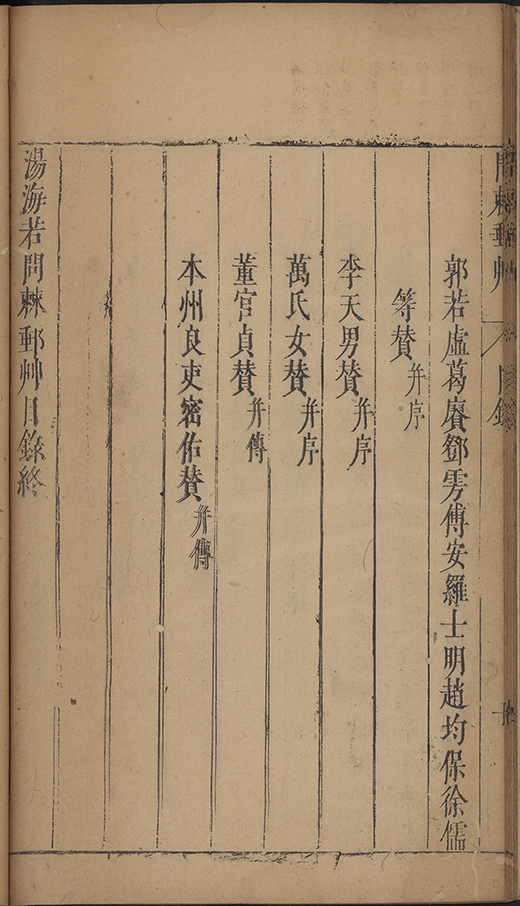 問棘郵艸 目錄
郭若虛葛賡鄧雱傅安羅士明趙均保徐儒
等贊并序
李天男贊并序
萬氏女贊并序
董官貞贊并傳
本州良吏密佑贊并傳
湯海若問棘郵艸目錄終